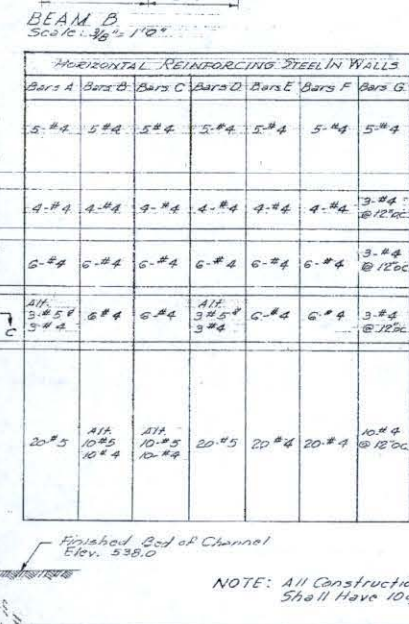 BEAM B
Scale: 3/8" = 1'0"
HORIZONTAL REINFORCING STEEL IN WALLS
Bars A Bars B Bars C Bars D Bars E Bars F Bars G
5-#4 5-#4 5-#4 5-#4 5-#4 5-#4 5-#4
4-#4 4-#4 4-#4 4-#4 4-#4 4-#4 3-#4 @ 12"oc
6-#4 6-#4 6-#4 6-#4 6-#4 6-#4 3-#4 @ 12"oc
Alt. 3-#5 & 3-#4 6#4 6-#4 Alt. 3#5 & 3#4 6-#4 6-#4 3-#4 @ 12"oc
C
20-#5 Alt. 10#5 10#4 Alt. 10-#5 10-#4 20-#5 20#4 20-#4 10-#4 @ 12"oc
Finished Bed of Channel
Elev. 538.0
NOTE: All Constructio
Shall Have 10